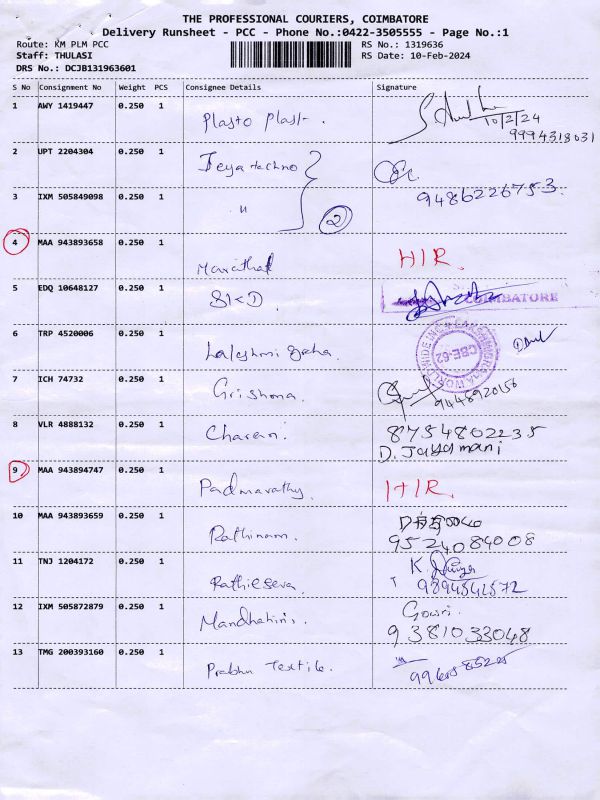 THE PROFESSIONAL COURIERS, COIMBATORE
Delivery Runsheet - PCC - Phone No.:0422-3505555 - Page No.:1
Route: KM PLM PCC
Staff: THULASI
DRS No.: DCJB131963601
RS No.: 1319636
RS Date: 10-Feb-2024
S No Consignment No Weight PCS Consignee Details Signature
1 AWY 1419447 0.250 1 Plasto plast.
10/2/24
9994318031
2 UPT 2204304 0.250 1 Jeya techno
3 IXM 505849098 0.250 1 " 2
9486226753.
4 MAA 943893658 0.250 1 Marathal H/R.
5 EDQ 10648127 0.250 1 SKD COIMBATORE
6 TRP 4520006 0.250 1 Lakshmi
CBE-62
7 ICH 74732 0.250 1 Grishma.
9448920156
8 VLR 4888132 0.250 1 Charan. 8754802235
D. Jayamani
9 MAA 943894747 0.250 1 Padmavathy. H/R.
10 MAA 943893659 0.250 1 Rathinam.
9524084008
11 TNJ 1204172 0.250 1 K.
9894542572
12 IXM 505872879 0.250 1 Gowri.
9381033048
13 TMG 200393160 0.250 1 Prabhu Textile.